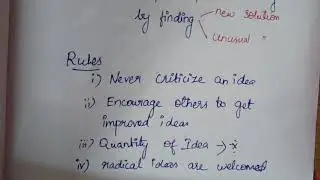 by finding
new solution
unusual "
Rules
i) Never criticize an idea
ii) Encourage others to get
improved ideas
iii) Quantity of Idea →
iv) radical ideas are welcomed